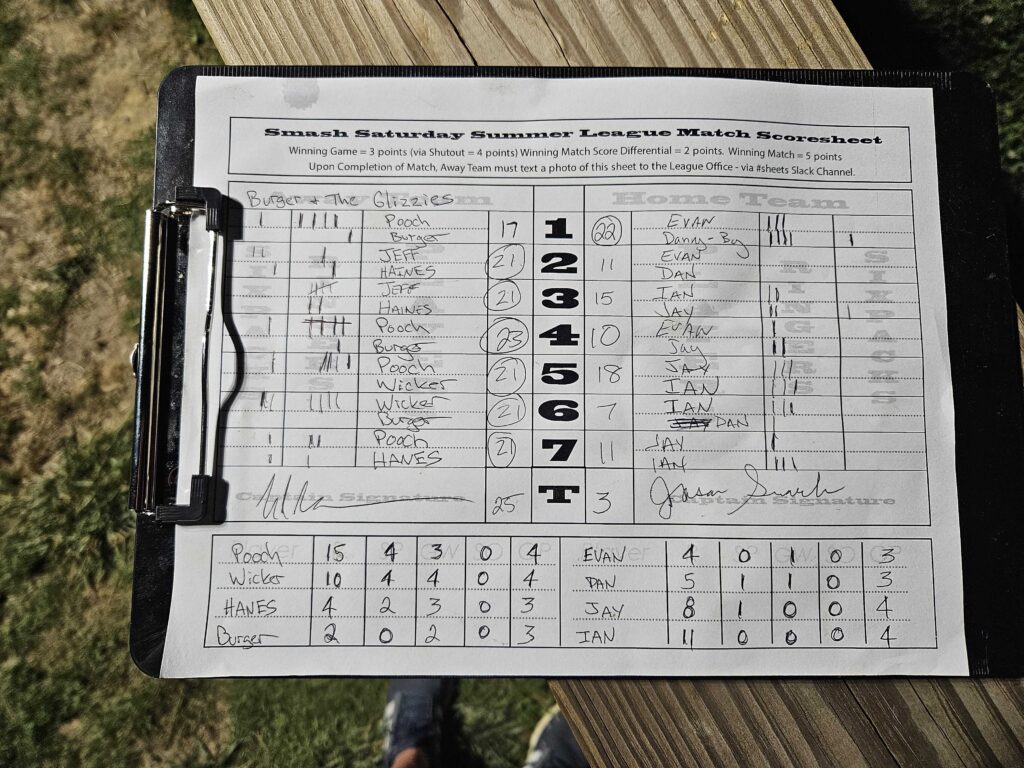 Smash Saturday Summer League Match Scoresheet
Winning Game = 3 points (via Shutout = 4 points) Winning Match Score Differential = 2 points. Winning Match = 5 points
Upon Completion of Match, Away Team must text a photo of this sheet to the League Office - via #sheets Slack Channel.
Burger & The Glizzies Home Team
Pooch 17 1 22 EVAN
Burger Danny-Boy
JEFF 21 2 11 EVAN
HAINES DAN
JEFF 21 3 15 IAN
HAINES JAY
Pooch 23 4 10 EVAN
Burger Jay
Pooch 21 5 18 JAY
Wicker IAN
Wicker 21 6 7 IAN
Burger DAN
Pooch 21 7 11 JAY
HANES IAN
Captain Signature 25 T 3 Captain Signature
Pooch 15 4 3 0 4 EVAN 4 0 1 0 3
Wicker 10 4 4 0 4 DAN 5 1 1 0 3
HANES 4 2 3 0 3 JAY 8 1 0 0 4
Burger 2 0 2 0 3 IAN 11 0 0 0 4